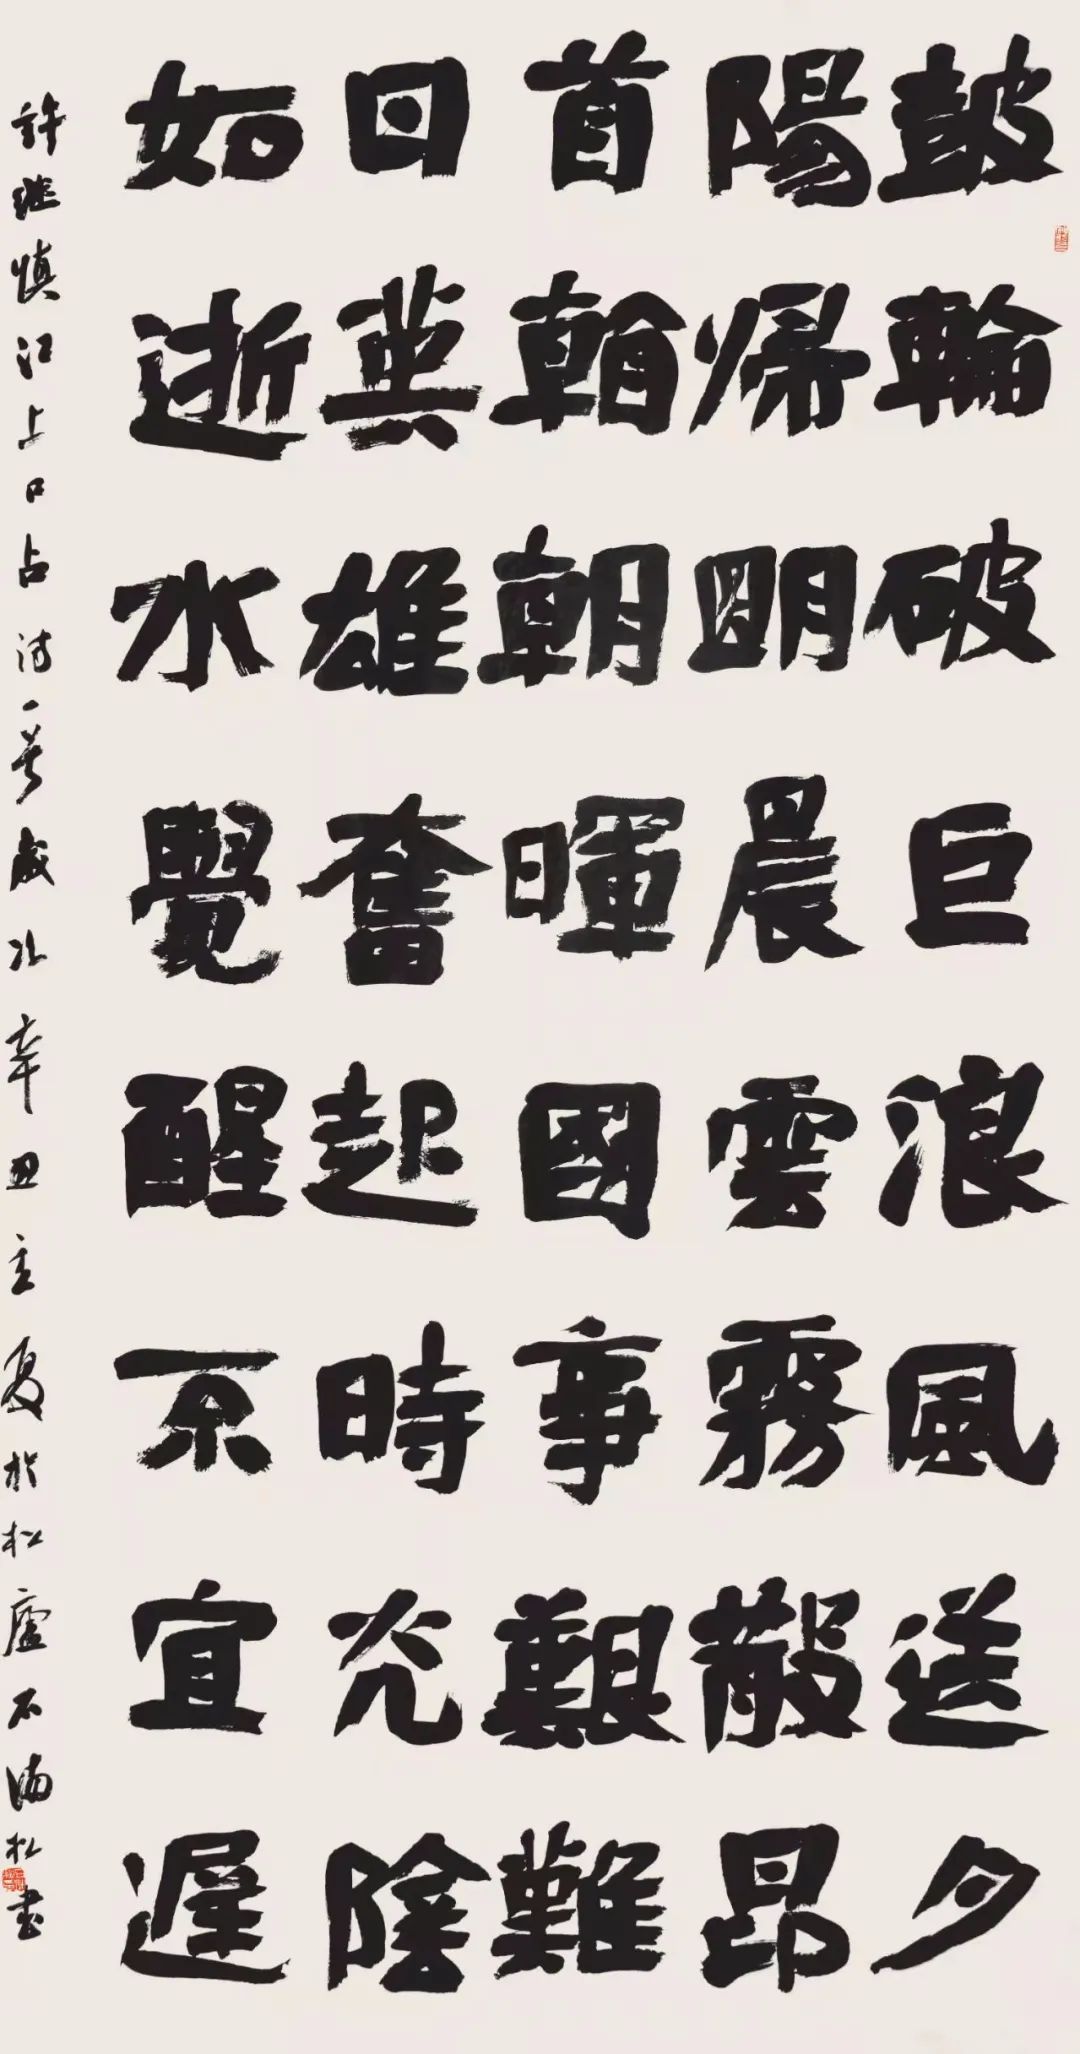 皷輪破巨浪風送夕
陽帰明晨雲霧散昂
首看朝暉國事艱難
日英雄奮起時光陰
如逝水覺醒不宜遲
許継慎江上口占詩一首歲次辛丑立夏於松廬石海松書